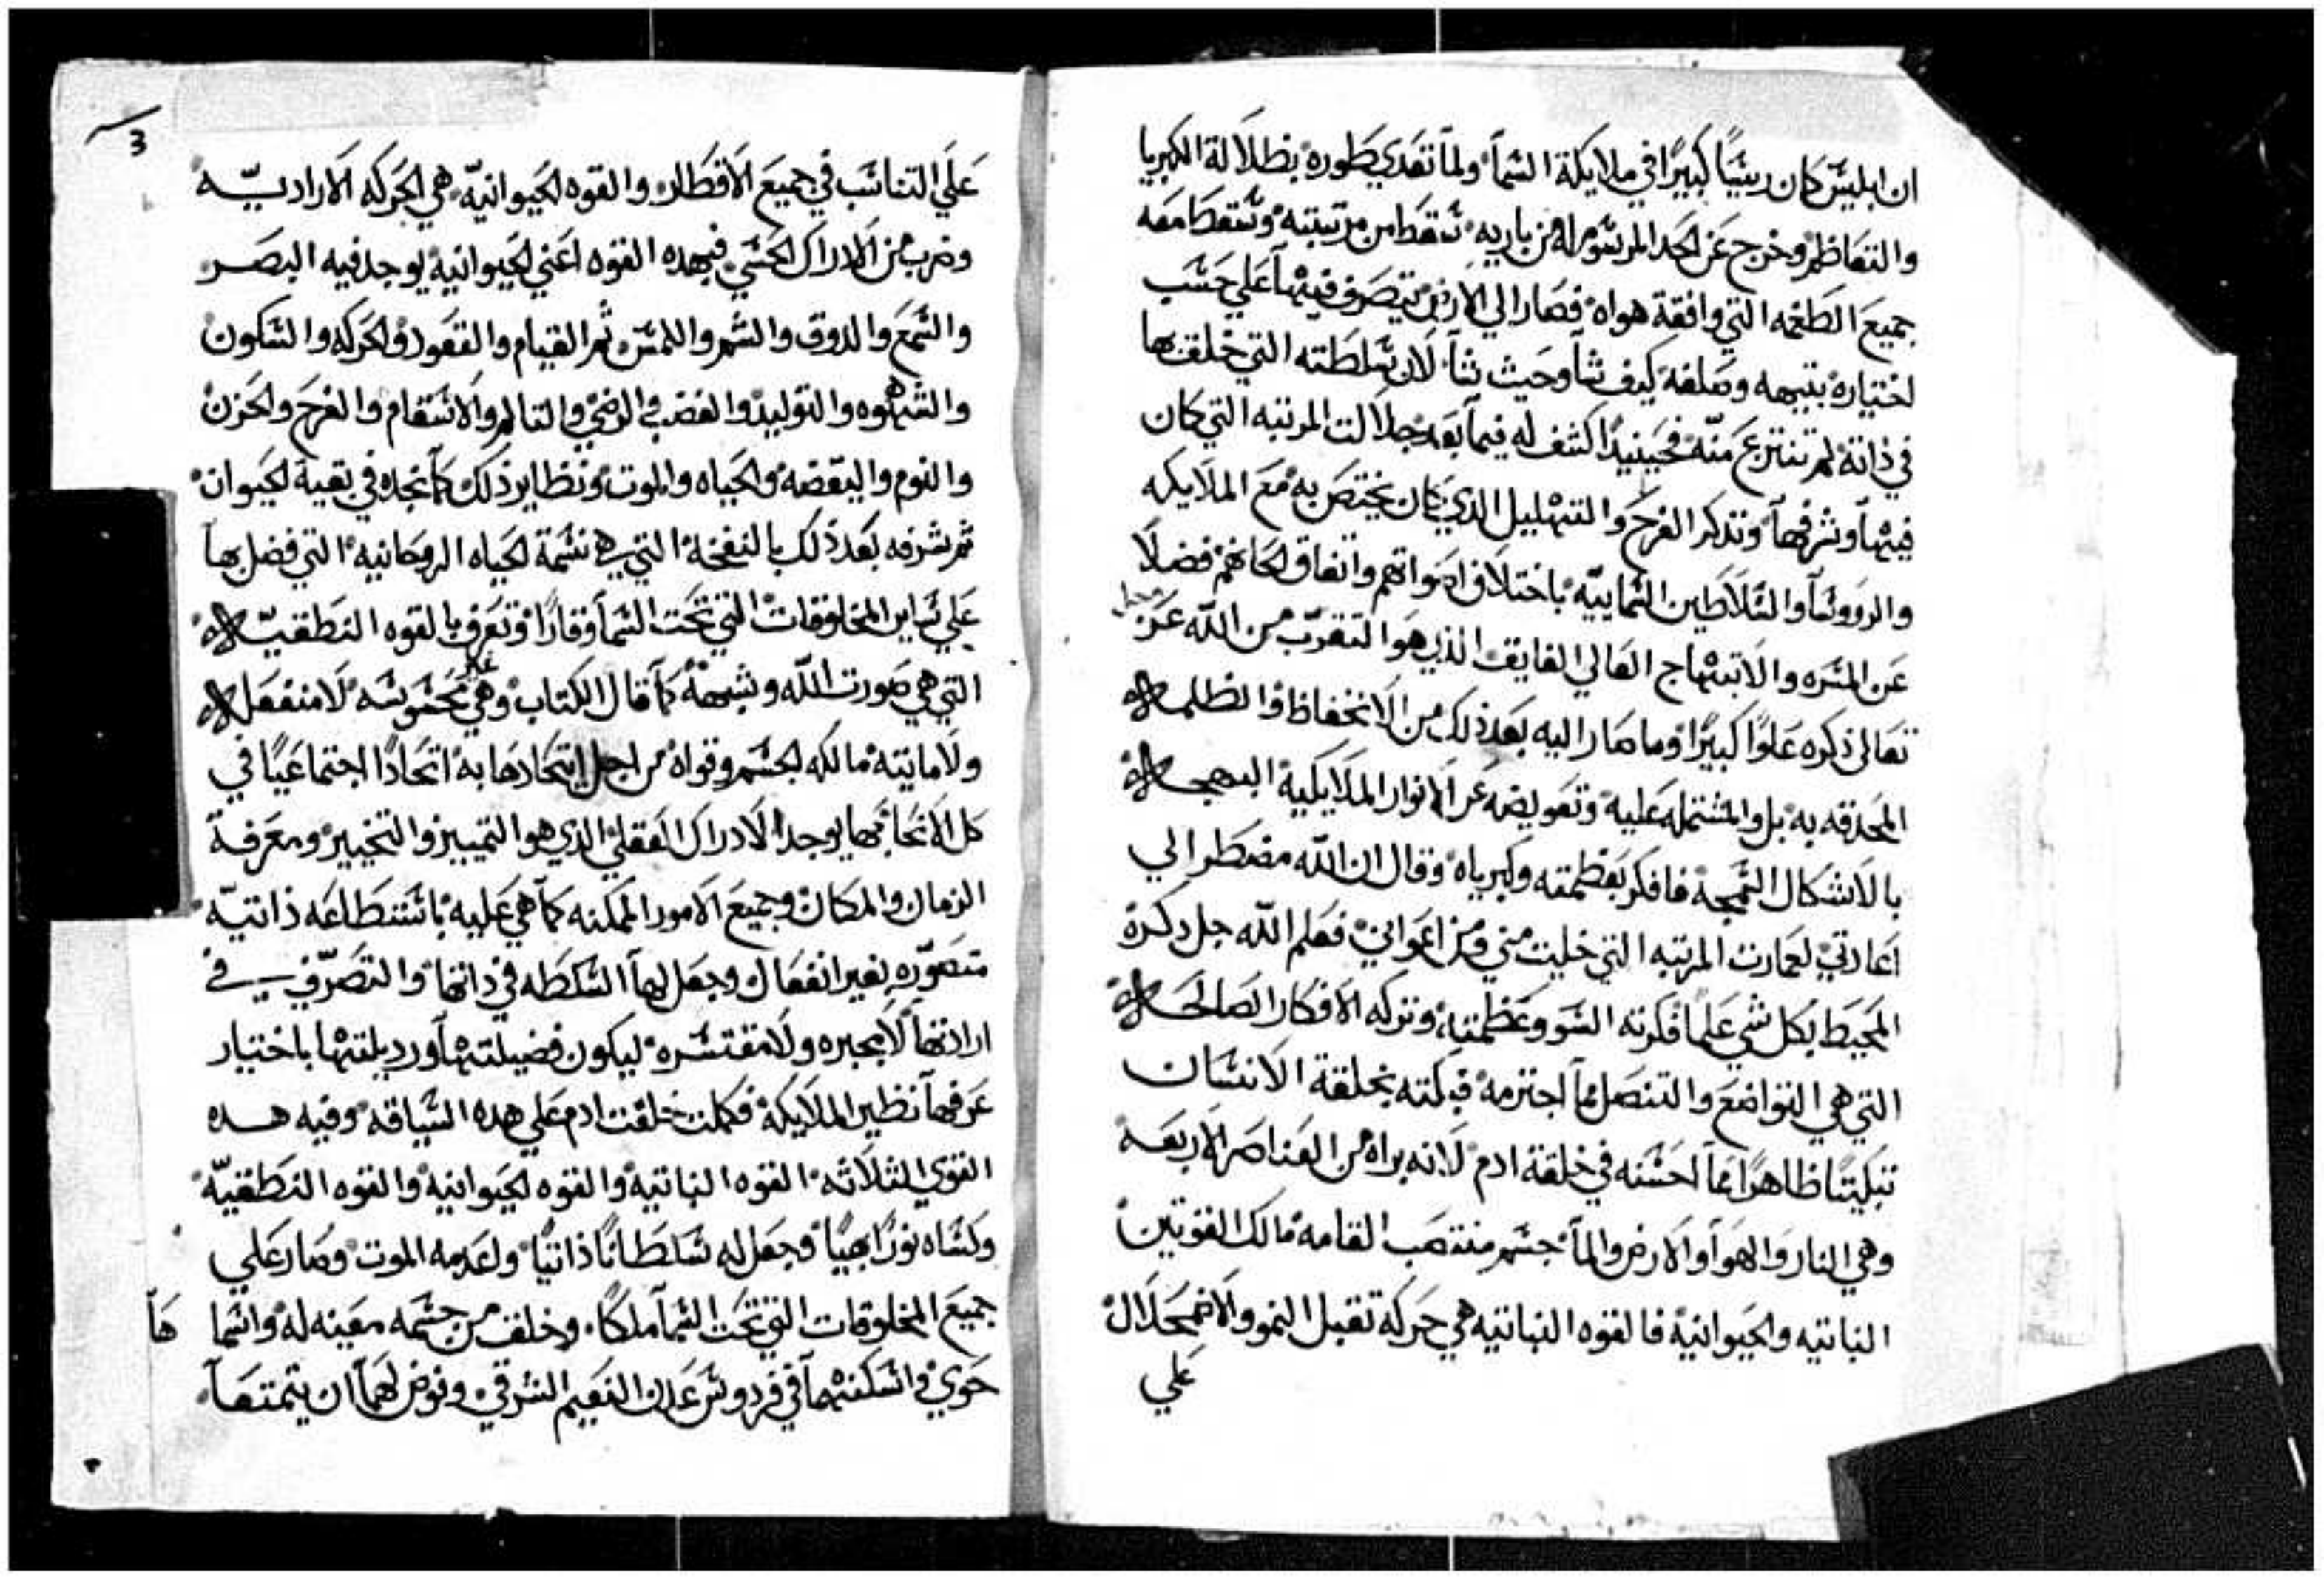 ان ابليس كان رييسًا كبيرًا في ملايكة السما ولما تعدي طوره بظلالة الكبريا
والتعاظم وخرج عن الحد المرسوم له من باريه سقط من مرتبته وسقط معه
جميع الطغمه التي وافقة هواه فصار الي الارض يتصرف فيها علي حسب
اختياره بتيهه وصلفه كيف شا وحيث شا لان سلطته التي خلقت بها
في ذاته لم تنتزع منه فحينيدًا كشف له فيما بعد جلالت المرتبه التي كان
فيها وشرفها وتدكر الفرح والتهليل الدي كان يختص به مع الملايكه
والرووسا والسلاطين السماييه باختلاف اصواتهم واتفاق الحانهم فضلًا
عن المسره والابتهاج العالي الفايق الذي هو التقرب من الله عز وجل
تعالى ذكره علوًا كبيرًا وما صار اليه بعد ذلك من الانخفاظ والظلمه
المحدقه به بل والمشتمله عليه وتعويضه عن الانوار الملايكية البهجه
بالاشكال السمجه فافكر بعظمته وكبرياه وقال ان الله مضطر الي
اعادتي لعمارت المرتبه التي خليت مني ومن اعواني فعلم الله جل دكره
المحيط بكل شي علما فكرته السو وعظمته وتركه الافكار الصالحه
التي هي التواضع والتنصل مما اجترمه فبكته بخلقة الانسان
تبكيتًا ظاهرًا عما احسنه في خلقة ادم لانه براه من العناصر الاربعه
وهي النار والهوا والارض والما جسم منتصب القامه مالك القوتين
النباتيه والحيوانية فالقوه النباتيه هي حركة تقبل النمو والاضمحلال
علي
3
علي التناسب في جميع الاقطار والقوه الحيوانيه هي الحركه الاراديه
وضرب من الادراك الحسي فبهده القوه اعني الحيوانيه يوجد فيه البصر
والسمع والدوق والشم واللمس ثم القيام والقعود والحركه والسكون
والشهوه والتوليد والغضب والرضي والتالم والانتقام والفرح والحزن
والنوم واليقضه والحياه والموت ونظاير ذلك كما نجده في بقية الحيوان
ثم شرفه بعد ذلك بالنفخة التي هي نسمة الحياه الروحانيه التي فضل بها
علي ساير المخلوقات التي تحت السما وقارًا وتعرف بالقوه النطقيه
التي هي صورت الله وشبهه كما قال الكتاب وهي غير محسوسه لا منفعله
ولا مايته مالكه الجسم وقواه من اجل اتحادها به اتحادًا اجتماعيًا في
كل الانحا بها يوجد الادراك العقلي الدي هو التمييز والتخيير ومعرفة
الزمان والمكان وجميع الامور الممكنه كما هي عليه باستطاعه ذاتيه
متصوره بغير انفعال وجعل لها السلطه في ذاتها والتصرف في
ارادتها لا مجبره ولا مقتسره ليكون فضيلتها ورديلتها باختيار
عرفها نظير الملايكة فكملت خلقت ادم علي هده السياقه وفيه هده
القوي الثلاثه القوه النباتيه والقوه الحيوانيه والقوه النطقيه
وكساه نورًا بهيًا وجعل له سلطانًا ذاتيًا ولعدمه الموت وصار علي
جميع المخلوقات التي تحت السما ملكًا وخلق من جسمه معينه له واسما ها
حوي واسكنهما في فردوس عدن النعيم الشرقي وفوض لهما ان يتمتعا